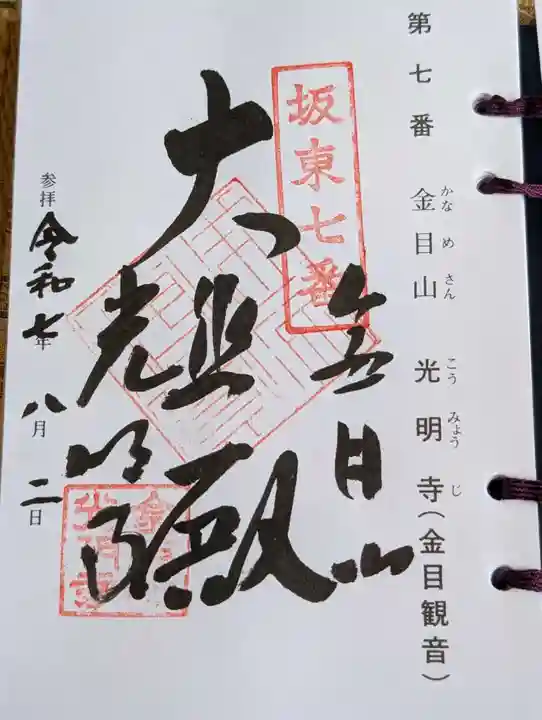 第七番 金目山 光明寺(金目観音)
かなめさん こうみょうじ
坂東七番
金目山
大悲殿
光明寺
参拝 令和七年 八月 二日